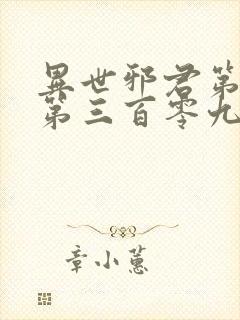 異世邪君第
第三百零九
章小蕙